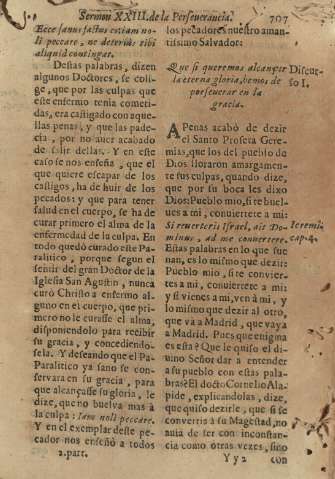 Sermon XXIII. de la Perseuerancia. 707
Ecce sanus factus es: iam no-
li peccare, ne deterius tibi
aliquid contingat.
Destas palabras, dizen
algunos Doctores, se coli-
ge, que por las culpas que
este enfermo tenia cometi-
das, era castigado con aque-
llas penas, y que las pade-
cia, por no auer acabado
de salir dellas. Y en esto
se nos enseña, que el
que quiere escapar de los
castigos, ha de huir de los
pecados: y que para tener
salud en el cuerpo, se ha de
curar primero el alma de la
enfermedad de la culpa. En
todo quedó curado este Pa-
ralitico, porque segun el
sentir del gran Doctor de la
Iglesia San Agustin, nunca
curó Christo a enfermo al-
guno en el cuerpo, que pri-
mero no le curasse el alma,
disponiendolo para recibir
su gracia, y concediendo-
sela. Y deseando que el Pa-
Paralitico ya sano se con-
servara en su gracia, para
que alcançasse su gloria, le
dize, que no buelva mas à
la culpa: Iam noli peccare.
Y en el exemplar deste pe-
cador nos enseñó a todos
2. part.
los pecadores nuestro aman-
tissimo Salvador:
Que si queremos alcançar
la eterna gloria, hemos de
perseuerar en la
gracia.
Discur-
so I.
APenas acabó de dezir
el Santo Profeta Gere-
mias, que los del pueblo de
Dios lloraron amargamen-
te sus culpas, quando dize,
que por su boca les dixo
Dios: Pueblo mio, si te buel-
ues a mi, conuiertete a mi:
Si reuerteris Israel, ait Do-
minus, ad me conuertere.
Ieremiæ
cap. 4.
Estas palabras en lo que sue-
nan, es lo mismo que dezir:
Pueblo mio, si te convier-
tes a mi, conuiertete a mi:
y si vienes a mi, ven à mi, y
lo mismo que dezir al otro,
que và a Madrid, que vaya
a Madrid. Pues que enigma
es esta? Que le quiso el di-
uino Señor dar a entender
a su pueblo con estas pala-
bras? El docto Cornelio Ala-
pide, explicandolas, dize,
que quiso dezirle, que si se
convertia à su Magestad, no
auia de ser con inconstan-
cia como otras vezes, sino
Yy 2 con